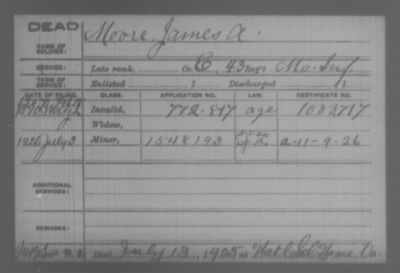 DEAD
NAME OF SOLDIER: Moore, James A.
SERVICE: Late rank, Co. C, 43 Reg't Mo. Inf.
TERM OF SERVICE: Enlisted , 1 Discharged , 1
DATE OF FILING. CLASS. APPLICATION NO. LAW. CERTIFICATE NO.
Invalid, 772.847 age 1083717
Widow,
1926 July 3 Minor, 1548193 A-11-9-26
ADDITIONAL SERVICES:
REMARKS:
died July 13, 1925 at Nat'l Sol. Home, Va.